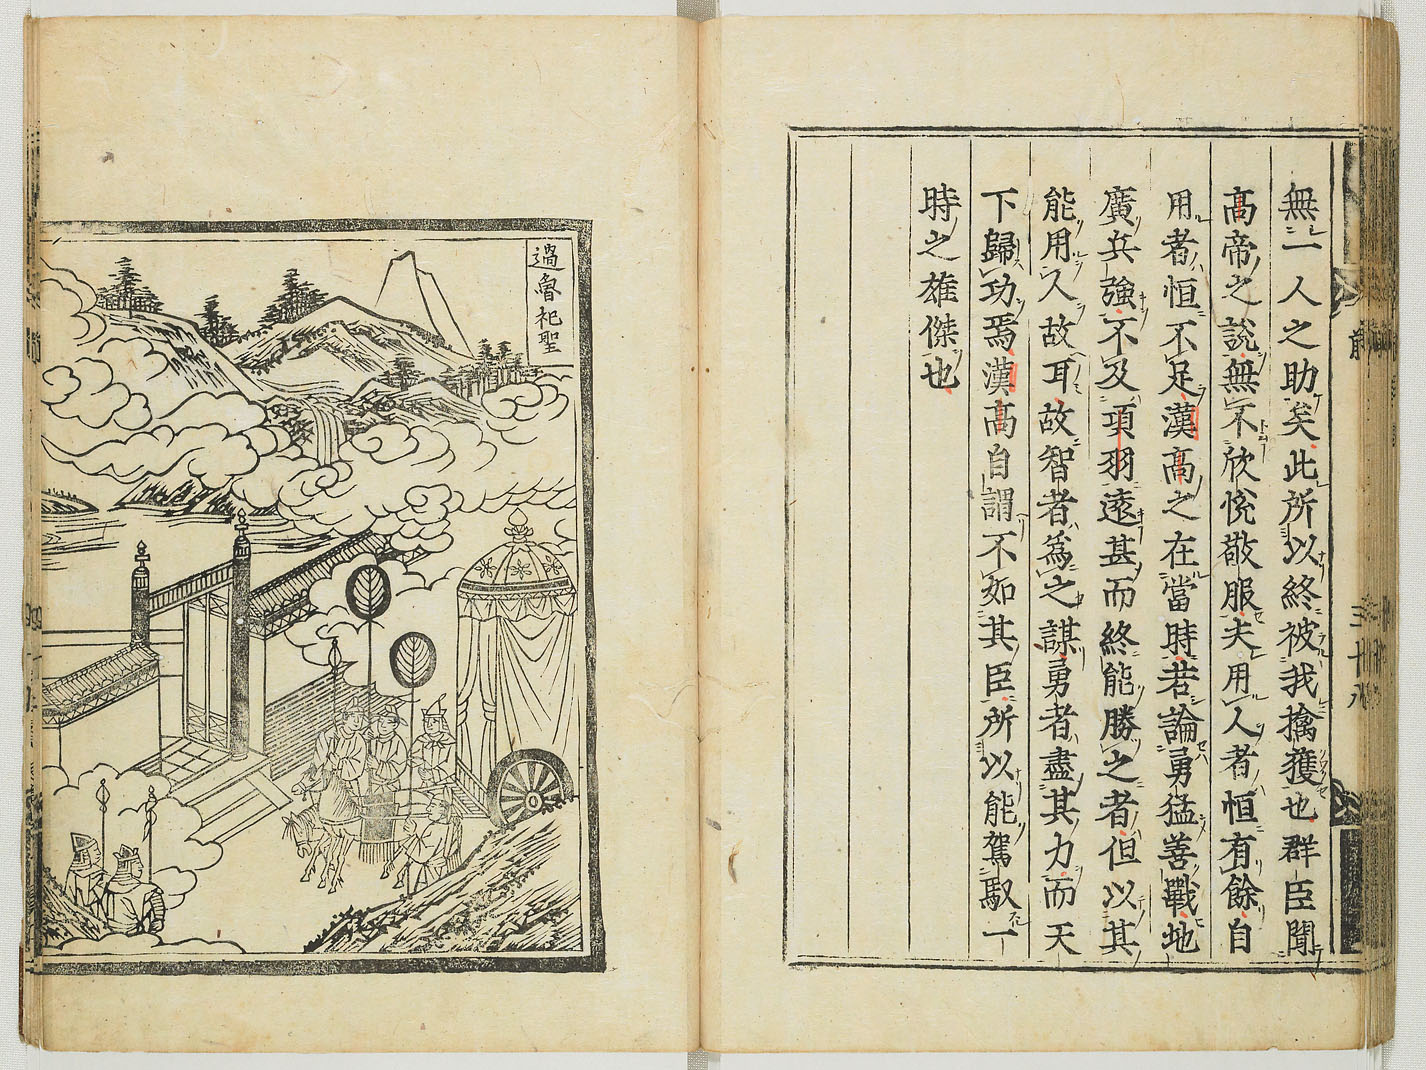 無一人之助矣此所以終被我擒獲也群臣聞
髙帝之說無不欣悅敬服夫用人者恒有餘自
用者恒不足漢髙之在當時若論勇猛善戰地
廣兵強不及項羽遠甚而終能勝之者但以其
能用人故耳故智者為之謀勇者盡其力而天
下歸功焉漢髙自謂不如其臣所以能駕馭一
時之雄傑也
過魯祀聖